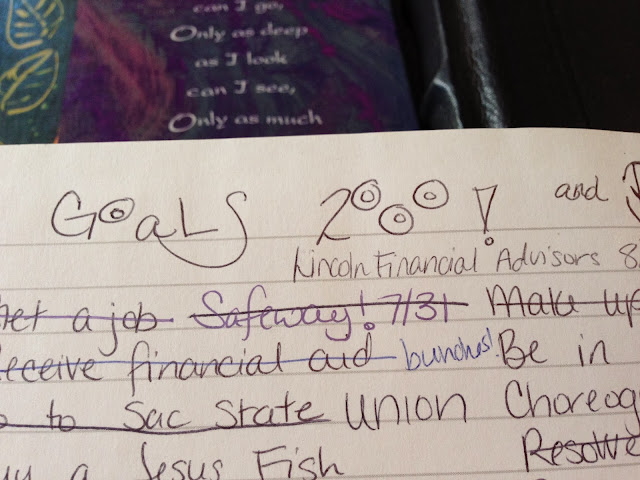 can I go,
Only as deep
as I look
can I see,
Only as much
Goals 2000! and
Lincoln Financial Advisors 8
get a job Safeway! 7/31 Make up
receive financial aid bunches! Be in
to Sac State Union Choreog
a Jesus Fish Resolve